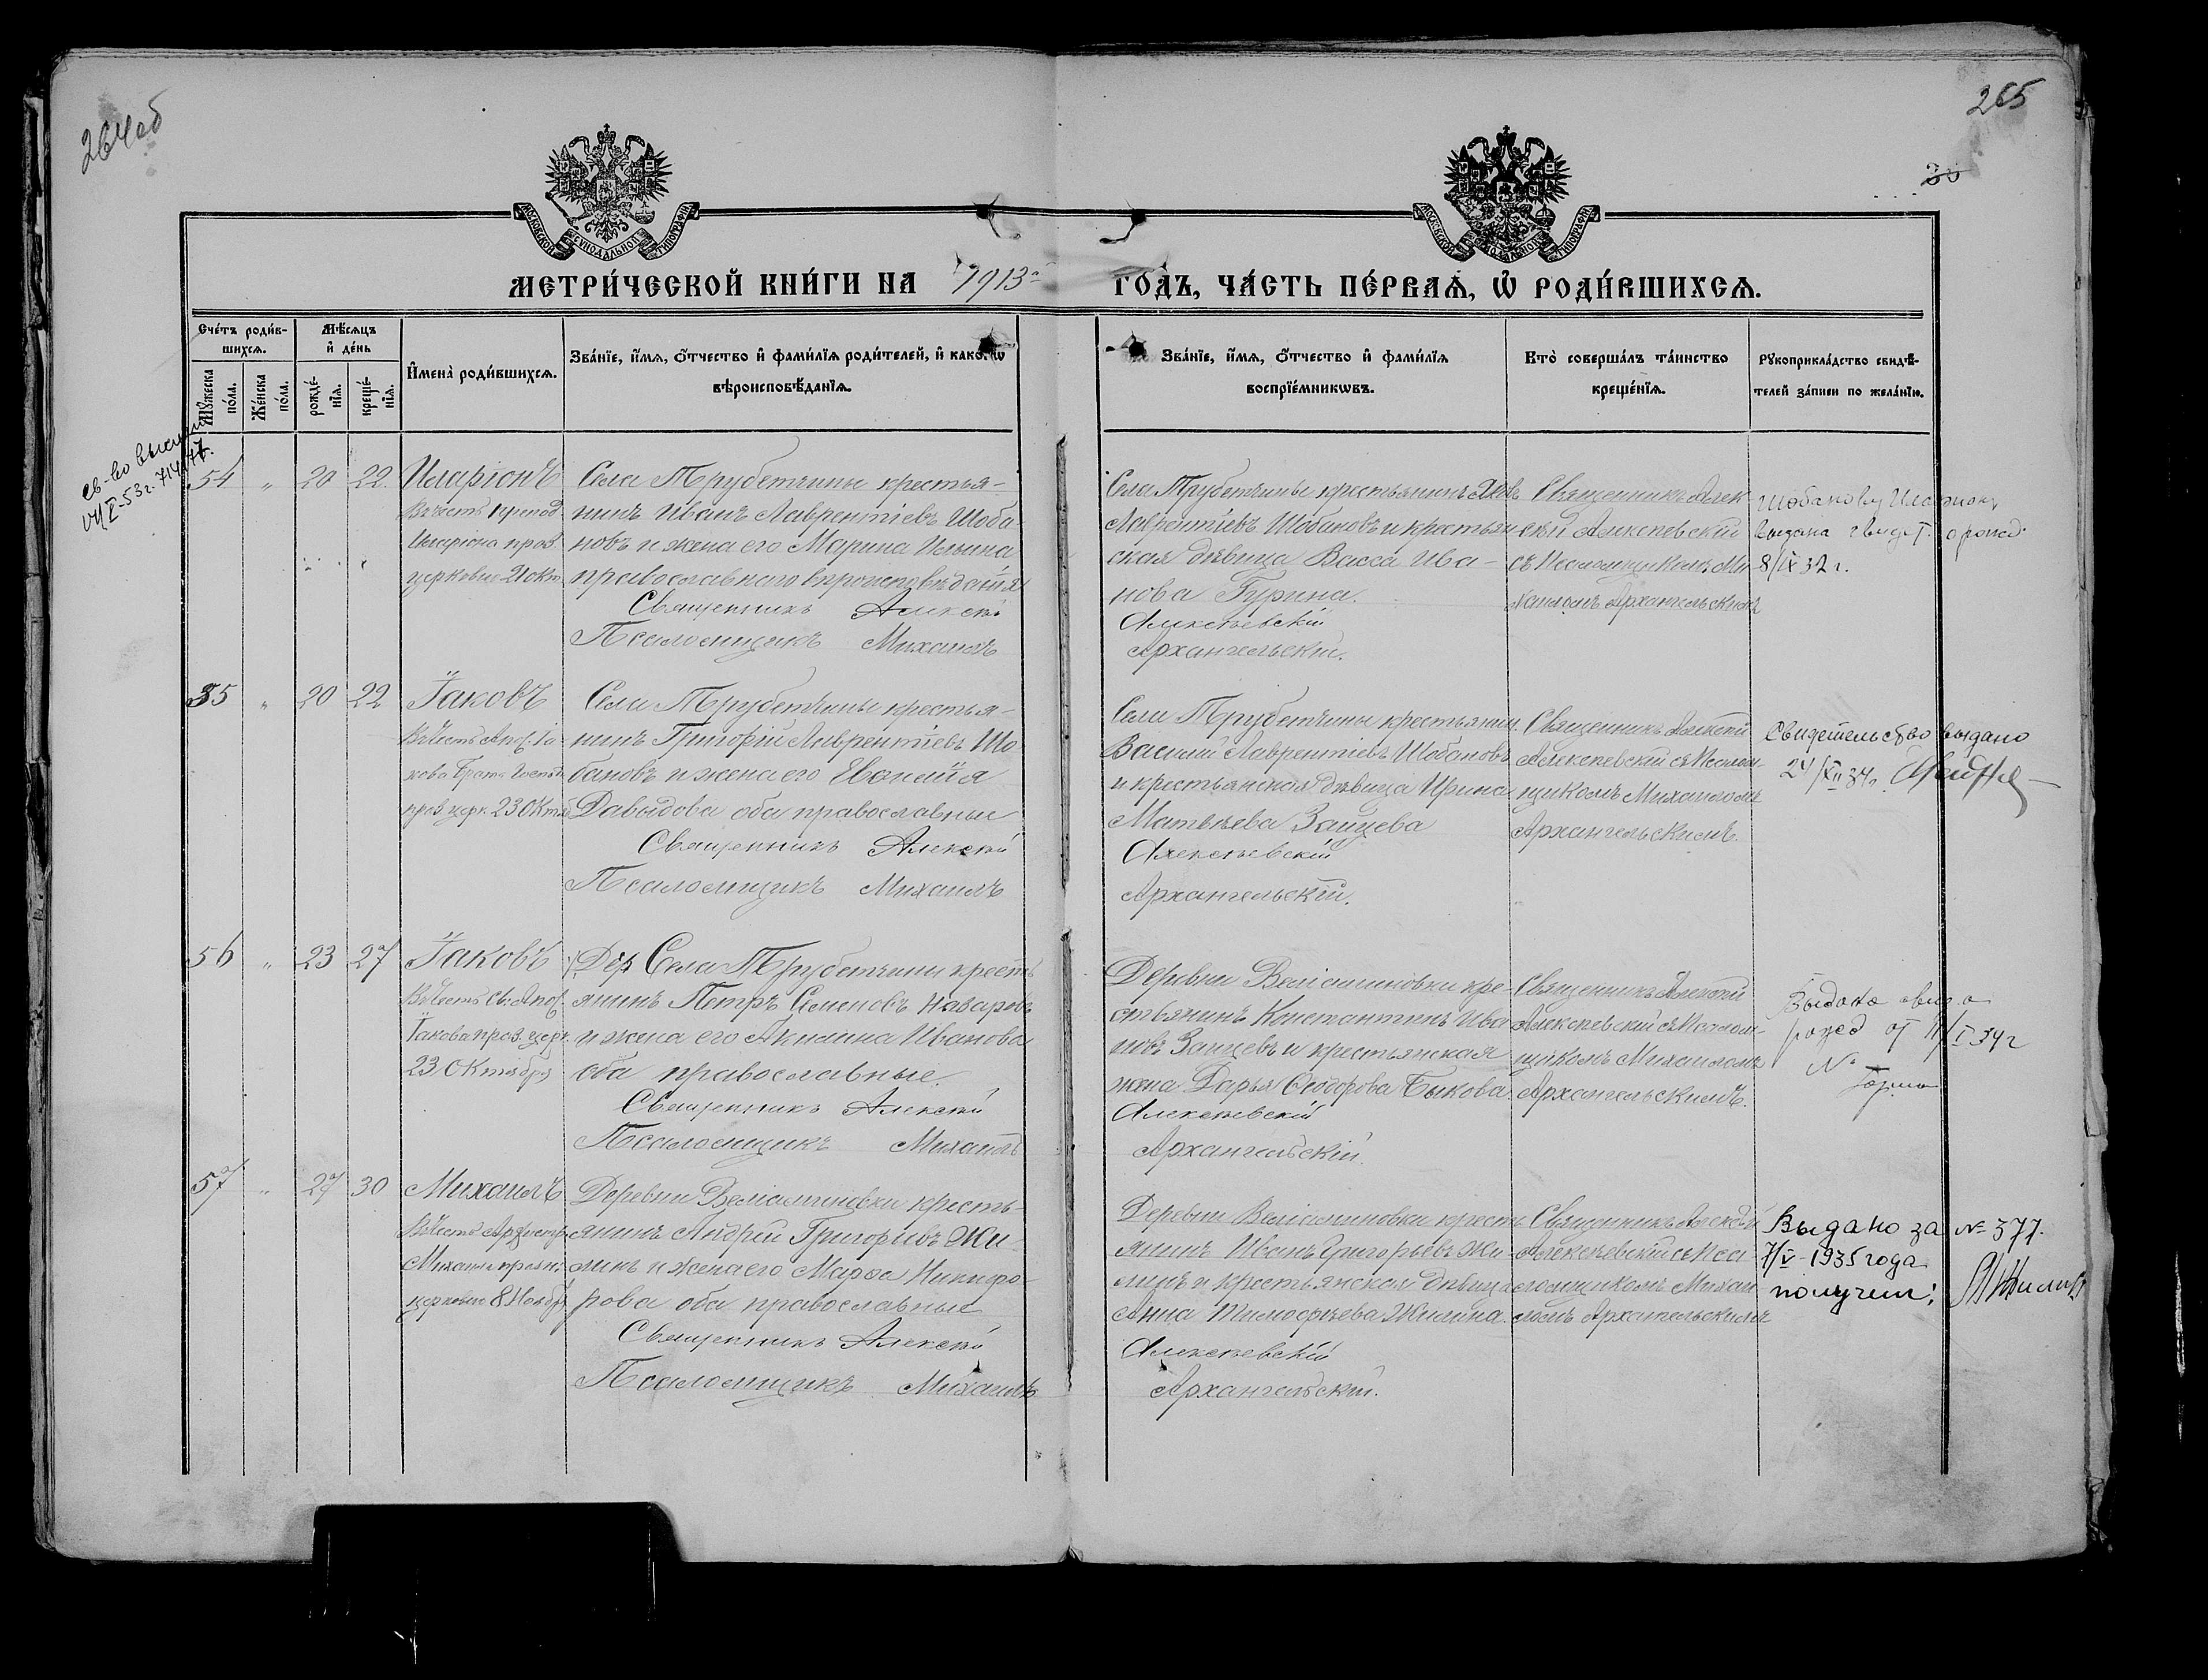 264об
265
30
МОСКОВСКОЙ СѴНОДАЛЬНОЙ ТИПОГРАФІИ
МОСКОВСКОЙ СѴНОДАЛЬНОЙ ТИПОГРАФІИ
МЕТРИ́ЧЕСКОЙ КНИ́ГИ НА 1913й ГО́ДЪ, ЧА́СТЬ ПЕ́РВАѦ, Ѡ҆ РОДИ́ВШИХСѦ.
Сче́тъ роди́в-
шихсѧ.
Мꙋ́жеска по́ла.
Же́нска по́ла.
Мѣ́сѧцъ
и҆ де́нь
рожде́-
нїѧ.
креще́-
нїѧ.
И҆мена̀ роди́вшихсѧ.
Зва́нїе, и҆́мѧ, ѻ҆́тчество и҆ фамѝлїѧ роди́телей, и҆ како́гѡ
вѣроисповѣ́данїѧ.
Зва́нїе, и҆́мѧ, ѻ҆́тчество и҆ фамѝлїѧ
воспрїе́мникѡвъ.
Кто̀ соверша́лъ та́инство
креще́нїѧ.
Рꙋкоприкла́дство свидѣ́-
телей за́писи по жела́нїю.
св-во
54 " 20 22
Иларіонъ
Въ честь препод.
Иларіона праз.
церковью 21 окт.
Села Трубетчины крестья-
нинъ Иванъ Лаврентіевъ Шоба-
новъ и жена его Марина Ильина
православнаго вѣроисповѣданія
Священникъ Алексѣй
Псаломщикъ Михаилъ
Села Трубетчины крестьянинъ
Лаврентіевъ Шобановъ и крестьян-
ская дѣвица Васса Ива-
нова Гурина.
Алексѣевскій
Архангельскій.
Священникъ Алек-
сѣй Алексѣевскій
съ Псаломщикомъ Ми-
хаиломъ Архангельскимъ
Шобанову Илариону
выдана свидет. о рожд.
8/IX 32 г.
55 " 20 22
Іаковъ
Въ честь Апос. Іа-
кова Брата Господн.
праз. церк. 23 Октяб.
Села Трубетчины крестья-
нинъ Григорій Лаврентіевъ Шо-
бановъ и жена его Евѳимія
Давыдова оба православные
Священникъ Алексѣй
Псаломщикъ Михаилъ
Села Трубетчины крестьянин.
Василій Лаврентіевъ Шобановъ
и крестьянская дѣвица Ирина
Матвѣева Зайцева
Алексѣевскій
Архангельскій.
Священникъ Алексѣй
Алексѣевскій съ Псалом-
щикомъ Михаиломъ
Архангельскимъ.
Свидетельство выдано
24/XII 34 г.
56 " 23 27
Іаковъ
Въ честь Св: Апос.
Іакова праз. церк.
23 Октября
Дер Села Трубетчины кресть-
янинъ Петръ Семеновъ Назаровъ
и жена его Акилина Иванова
оба православные.
Священникъ Алексѣй
Псаломщикъ Михаилъ
Деревни Веліаминовки кре-
стьянинъ Константинъ Ива-
новъ Зайцевъ и крестьянская
жена Дарья Ѳеодорова Быкова.
Алексѣевскій
Архангельскій.
Священникъ Алексѣй
Алексѣевскій съ Псалом-
щикомъ Михаиломъ
Архангельскимъ.
Выдано свид. о
рожд от
№
57 " 27 30
Михаилъ
Въ честь Архистр.
Михаила праздн.
церковью 8 Ноября
Деревни Веліаминовки кресть-
янинъ Андрей Григорьевъ Жи-
линъ и жена его Марѳа Никифо-
рова оба православные
Священникъ Алексѣй
Псаломщикъ Михаилъ
Деревни Веліаминовки кресть-
янинъ Иванъ Григорьевъ Жи-
линъ и крестьянская дѣвица
Анна Тимофѣева Жилина.
Алексѣевскій
Архангельскій.
Священникъ Алексѣй
Алексѣевскій съ Пса-
ломщикомъ Михаи-
ломъ Архангельскимъ
Выдано за № 377.
7/V-1935 года
получил: